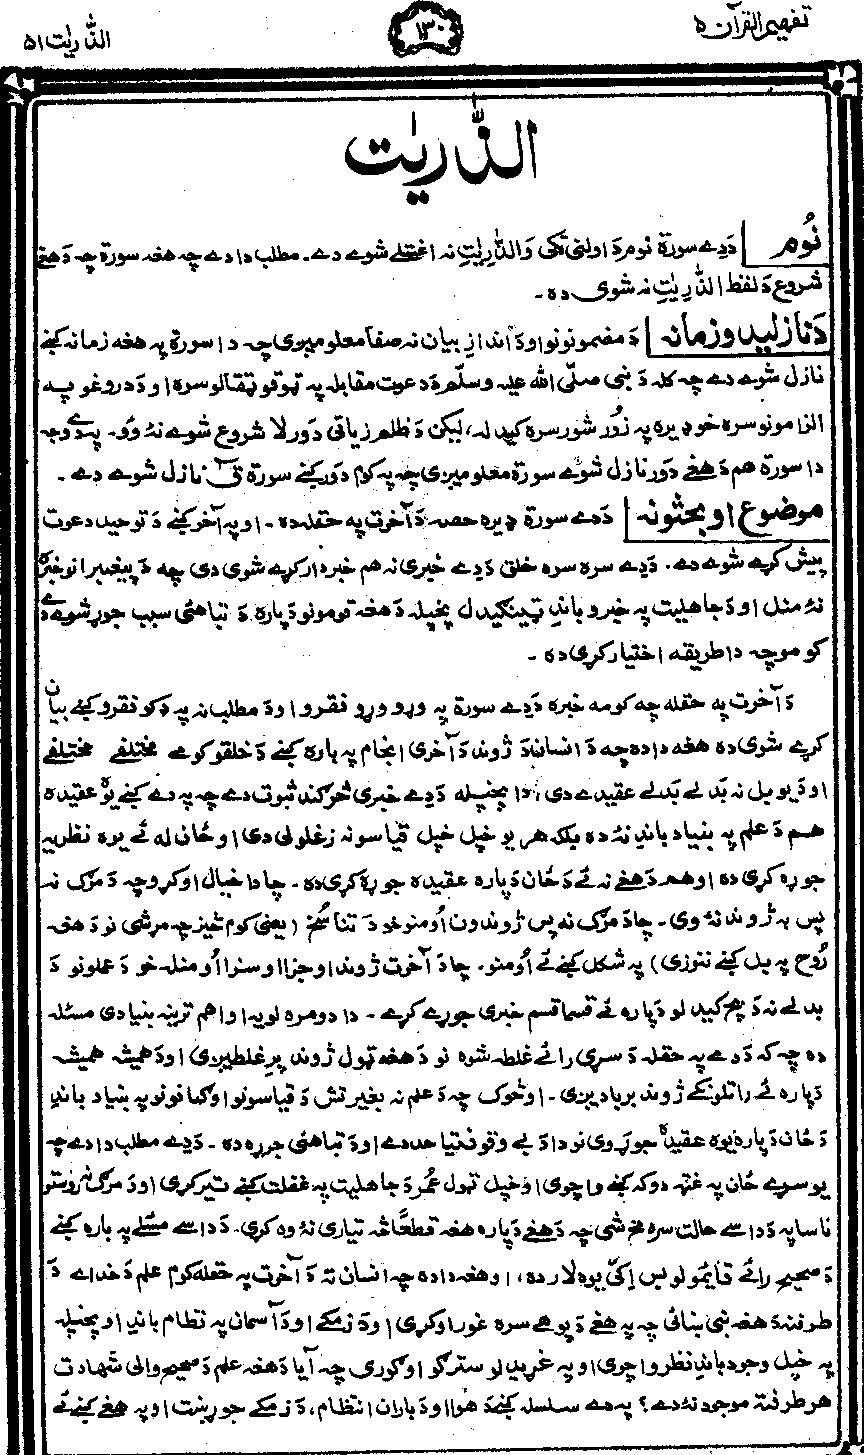 تفهیم القرآن ۵
۱۳۰
الذّٰریٰت ۵۱
الذّٰریٰت
نُوم
دَدے سورة نوم دَ اولنی ټکی وَالذّٰرِیٰتِ نہ اغستلے شوے دے۔ مطلب دا دے چہ هغہ سورة چہ دَهغے
شروع دَ لفظ الذّٰرِیٰتِ نہ شوی دہ۔
دَنازلیدو زمانہ
دَ مضمونونو او دَ اندازِ بیان نہ صفا معلومیږی چہ دا سورة پہ هغہ زمانہ کښے
نازل شوے دے چہ کلہ دَ نبی صلّی اللہ علیہ وسلّم دَ دعوت مقابلہ پہ ټوقو ټقالو سرہ او دَ دروغو پہ
الزامونو سرہ خو ډیرہ پہ زُور شور سرہ کیدلہ، لیکن دَ ظلم زیاتی دَور لا شروع شوے نۂ وُو۔ پدے وجہ
دا سورة هم دَهغے دَور نازل شوے سورة معلومیږی چہ پہ کوم دَور کښے سورة قٓ نازل شوے دے۔
موضوع او بحثونہ
دَدے سورة ډیرہ حصہ دَ آخرت پہ حقلہ دہ۔ او پہ آخر کښے دَ توحید دعوت
پیش کړے شوے دے۔ دَدے سرہ سرہ خلق دَدے خبرے نہ هم خبردار کړے شوی دی چہ دَ پیغمبرانو خبرہ
نۂ منل او دَ جاهلیت پہ خبرو باندِ ټینګیدل پخپلہ دَهغہ قومونو دَپارہ دَ تباهئ سبب جوړ شوے دے
کومو چہ دا طریقہ اختیار کړی دہ۔
دَ آخرت پہ حقلہ چہ کومہ خبرہ دَدے سورة پہ وړو وړو فقرو او دَ مطلب نہ پہ ډکو فقرو کښے بیان
کړے شوی دہ هغہ دا دہ چہ دَ انسان دَ ژوند دَ آخری انجام پہ بارہ کښے دَ خلقو کومے مختلفے مختلفے
او دَ یوبل نہ بَدلے بَدلے عقیدے دی، دا پخپلہ دَدے خبرے څرګند ثبوت دے چہ پہ دے کښے یوہ عقیدہ
هم دَ علم پہ بنیاد باندِ نۂ دہ بلکہ هر یو خپل خپل قیاسونہ زغلولی دی او ځان لہ ئے یوہ نظریہ
جوړہ کړی دہ او هم دَهغے نہ ئے دَ ځان دَپارہ عقیدہ جوړہ کړی دہ۔ چا دا خیال اوکړو چہ دَ مرګ نہ
پس بہ ژوند نۂ وی۔ چا دَ مرګ نہ پس ژوندون اُومنو خو دَ تناسُخ (یعنی کوم څیز چہ مړ شی نو دَهغہ
رُوح پہ بل کښے ننوزی) پہ شکل کښے ئے اُومنو۔ چا دَ آخرت ژوند او جزا او سزا اُومنلہ خو دَ عملونو دَ
بدلے نہ دَ بچ کیدلو دَپارہ ئے قسما قسم خبرے جوړے کړے۔ دا دومرہ لویہ او اهم ترینہ بنیادی مسئلہ
دہ چہ کہ دَدے پہ حقلہ دَ سړی رائے غلطہ شوہ نو دَهغہ ټول ژوند پرِ غلطیږی او دَ همیشہ همیشہ
دَپارہ ئے راتلونکے ژوند بربادیږی۔ او څوک چہ دَ علم نہ بغیر تش دَ قیاسونو او ګمانونو پہ بنیاد باندِ
دَ ځان دَپارہ یوہ عقیدہ جوړوی نو دا دَ بے وقوفتیا حد دے او دَ تباهئ جړرہ دہ۔ دَدے مطلب دا دے چہ
یو سړے ځان پہ غټہ دوکہ کښے واچوی او خپل ټول عُمر دَ جاهلیت پہ غفلت کښے تیر کړی او دَ مرګ نہ وروستو
ناساپہ دَ داسے حالت سرہ مخ شی چہ دَهغے دَپارہ هغہ قطعًا څہ تیاری نۂ وہ کړی۔ دَ داسے مسئلے پہ بارہ کښے
دَ صحیح رائے قایٔمولو بس اِکّی یوہ لار دہ، او هغہ دا دہ چہ انسان تہ دَ آخرت پہ حقلہ کوم علم دَ خدائے دَ
طرفنہ دَهغہ نبی ښائی چہ پہ هغے دَ پوهے سرہ غور اوکړی او دَ زمکے او دَ آسمان پہ نظام باندِ او پخپلہ
پہ خپل وجود باندِ نظر واچوی او پہ غړیدلو سترګو اوګوری چہ آیا دَهغہ علم دَ صحیح والی شهادت
هر طرفتہ موجود نۂ دے؟ پہ دے سلسلہ کښے دَ هوا او دَ باران انتظام، دَ زمکے جوړښت او پہ هغے کښے ئے